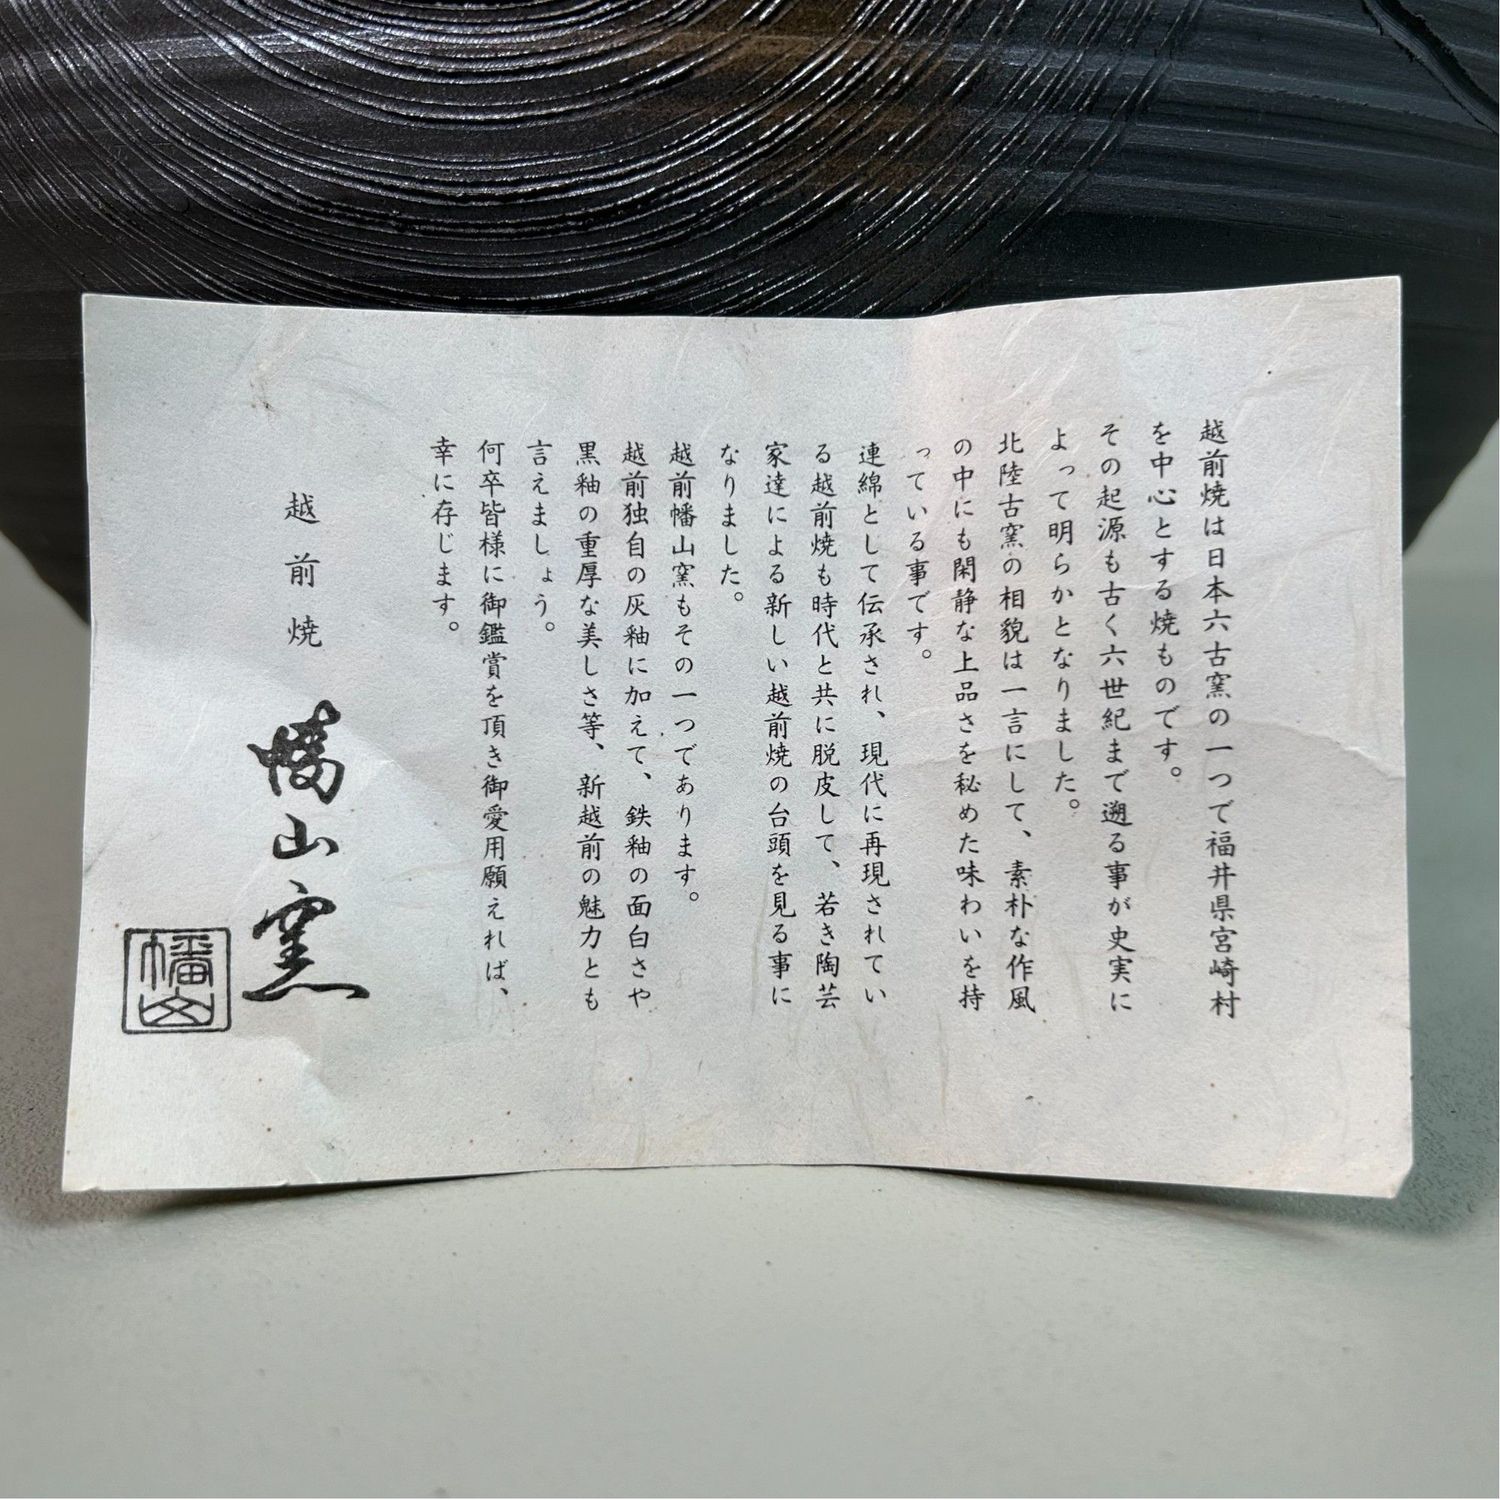 越前焼は日本六古窯の一つで福井県宮崎村
を中心とする焼ものです。
その起源も古く六世紀まで遡る事が史実に
よって明らかとなりました。
北陸古窯の相貌は一言にして、素朴な作風
の中にも閑静な上品さを秘めた味わいを持
っている事です。
連綿として伝承され、現代に再現されてい
る越前焼も時代と共に脱皮して、若き陶芸
家達による新しい越前焼の台頭を見る事に
なりました。
越前幡山窯もその一つであります。
越前独自の灰釉に加えて、鉄釉の面白さや
黒釉の重厚な美しさ等、新越前の魅力とも
言えましょう。
何卒皆様に御鑑賞を頂き御愛用願えれば、
幸に存じます。
越前焼 幡山窯
幡山